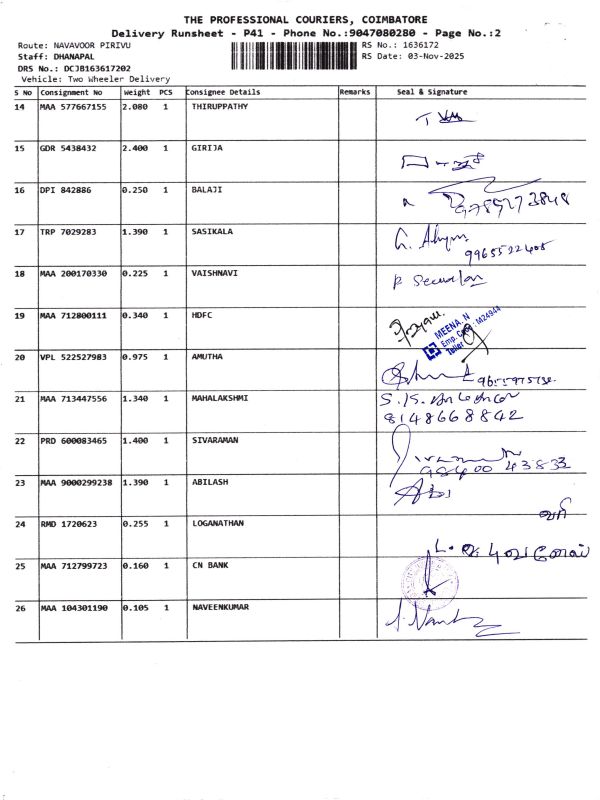 THE PROFESSIONAL COURIERS, COIMBATORE
Delivery Runsheet - P41 - Phone No.:9047080280 - Page No.:2
Route: NAVAVOOR PIRIVU RS No.: 1636172
Staff: DHANAPAL RS Date: 03-Nov-2025
DRS No.: DCJB163617202
Vehicle: Two Wheeler Delivery
S No Consignment No Weight PCS Consignee Details Remarks Seal & Signature
14 MAA 577667155 2.080 1 THIRUPPATHY
15 GDR 5438432 2.400 1 GIRIJA
16 DPI 842886 0.250 1 BALAJI
17 TRP 7029283 1.390 1 SASIKALA
9965522405
18 MAA 200170330 0.225 1 VAISHNAVI
19 MAA 712800111 0.340 1 HDFC
MEENA N
Emp. Code: M24944
Teller
20 VPL 522527983 0.975 1 AMUTHA
21 MAA 713447556 1.340 1 MAHALAKSHMI
8148668842
22 PRD 600083465 1.400 1 SIVARAMAN
98400 43833
23 MAA 9000299238 1.390 1 ABILASH
24 RMD 1720623 0.255 1 LOGANATHAN
25 MAA 712799723 0.160 1 CN BANK
26 MAA 104301190 0.105 1 NAVEENKUMAR